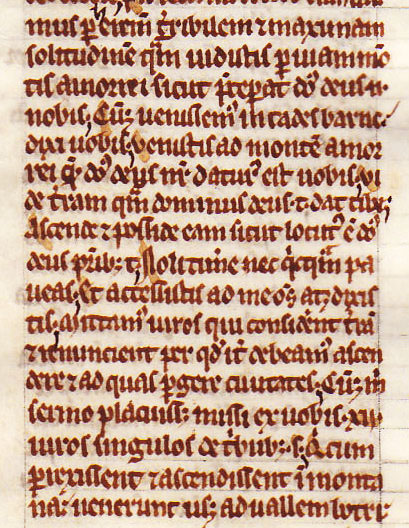 mus p̄ eremū t̄ribilem ⁊ maximam
solitudinē quā uidistis ꝑ uiam mōtis
tis amorrei sicut p̄ceperat dn̄s deus n̄
nobis. Cūꝫ uenissemꝰ in cades barne.
dixi uobis. Venistis ad montē amor
rei quē dn̄s deus nr̄ daturꝰ est uobis. Vi
de t̄ram quā dominus deus t. dat tibi.
Ascende ⁊ posside eam sicut locutꝰ ē dn̄s
deus pr̄ibꝫ t. Noli timēe nec quicquā pa
ueas. Et accessistis ad me om̄s atꝫ dixis
tis. Mittamꝰ uiros qui considerent t̄rā
⁊ renuncient per quod it̄ debeamꝰ ascen
dere ⁊ ad quas ꝑgere ciuitates. Cūꝫ m̄
sermo placuissꝫ missi ex uobis .xii.
uiros singulos de t̄bubꝫ .s. Qui cum
perrexissent ⁊ ascendissent ī monta
na. uenerunt usꝫ ad uallem botri.